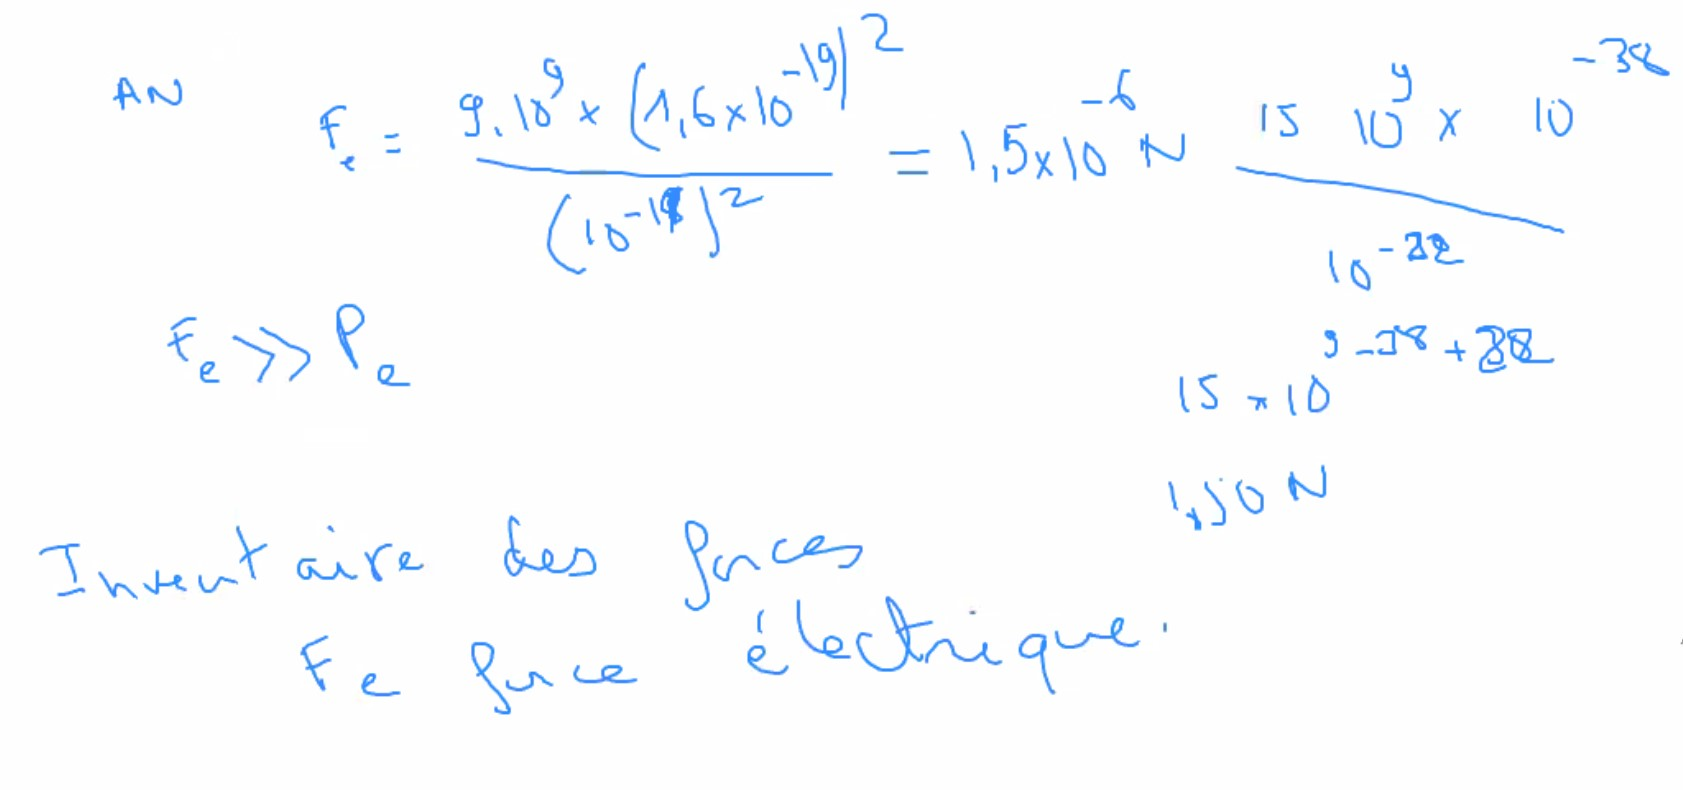 AN Fe = 9.10^9 × (1,6×10^-19)^2 / (10^-11)^2 = 1,5×10^-6 N
15 10^9 × 10^-38 / 10^-22
Fe >> Pe
15 × 10^9-38+22
1,50 N
Inventaire des forces
Fe force électrique.